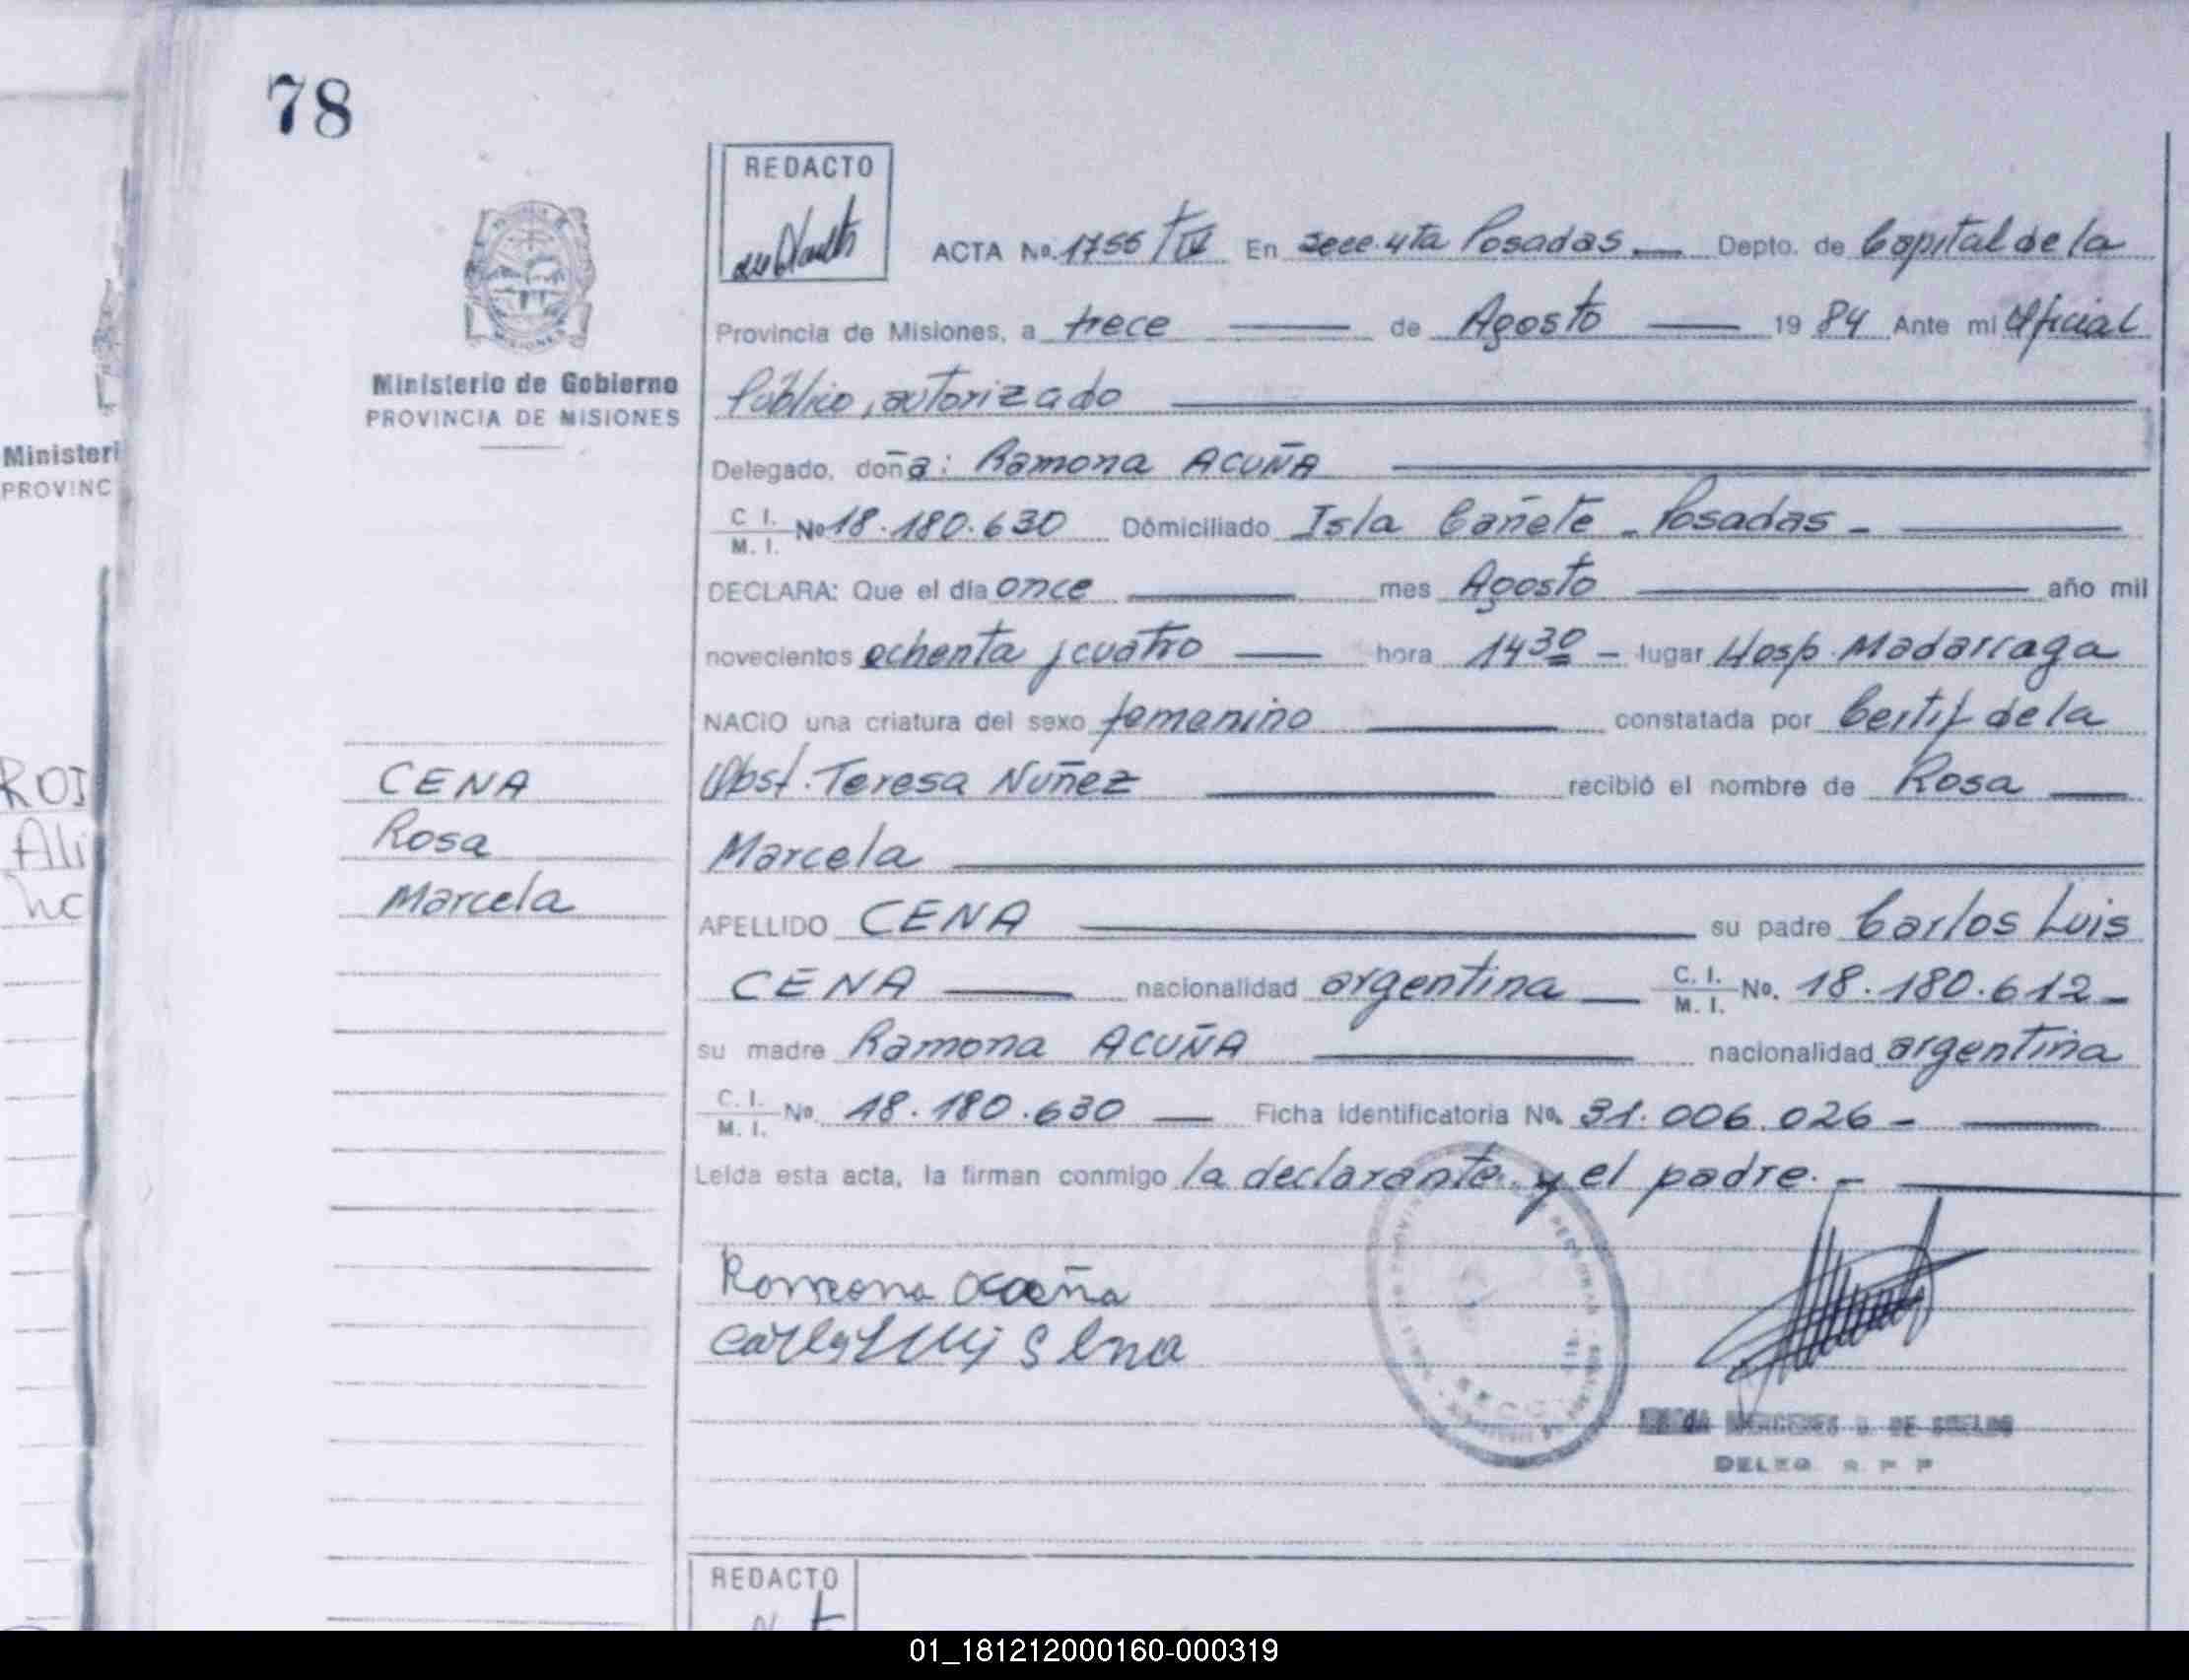 78
REDACTO
ACTA No. 1756/IV En secc. 4ta Posadas Depto. de Capital de la
Provincia de Misiones, a trece de Agosto 1984 Ante mi Oficial
Público, autorizado
Ministerio de Gobierno
PROVINCIA DE MISIONES
Ministeri
PROVINC
Delegado, doña: Ramona ACUÑA
C. I. M. I. No 18.180.630 Domiciliado Isla Cañete - Posadas -
DECLARA: Que el día once mes Agosto año mil
novecientos ochenta y cuatro hora 14 30 - lugar Hosp. Madarraga
NACIO una criatura del sexo femenino constatada por Certif de la
Obst. Teresa Nuñez recibió el nombre de Rosa
Marcela
CENA
Rosa
Marcela
APELLIDO CENA su padre Carlos Luis
CENA nacionalidad argentina C. I. M. I. No. 18.180.612-
su madre Ramona ACUÑA nacionalidad argentina
C. I. M. I. No. 18.180.630 Ficha Identificatoria No. 31.006.026 -
Leída esta acta, la firman conmigo la declarante y el padre. -
DELEG. R. P. P
REDACTO
01_181212000160-000319